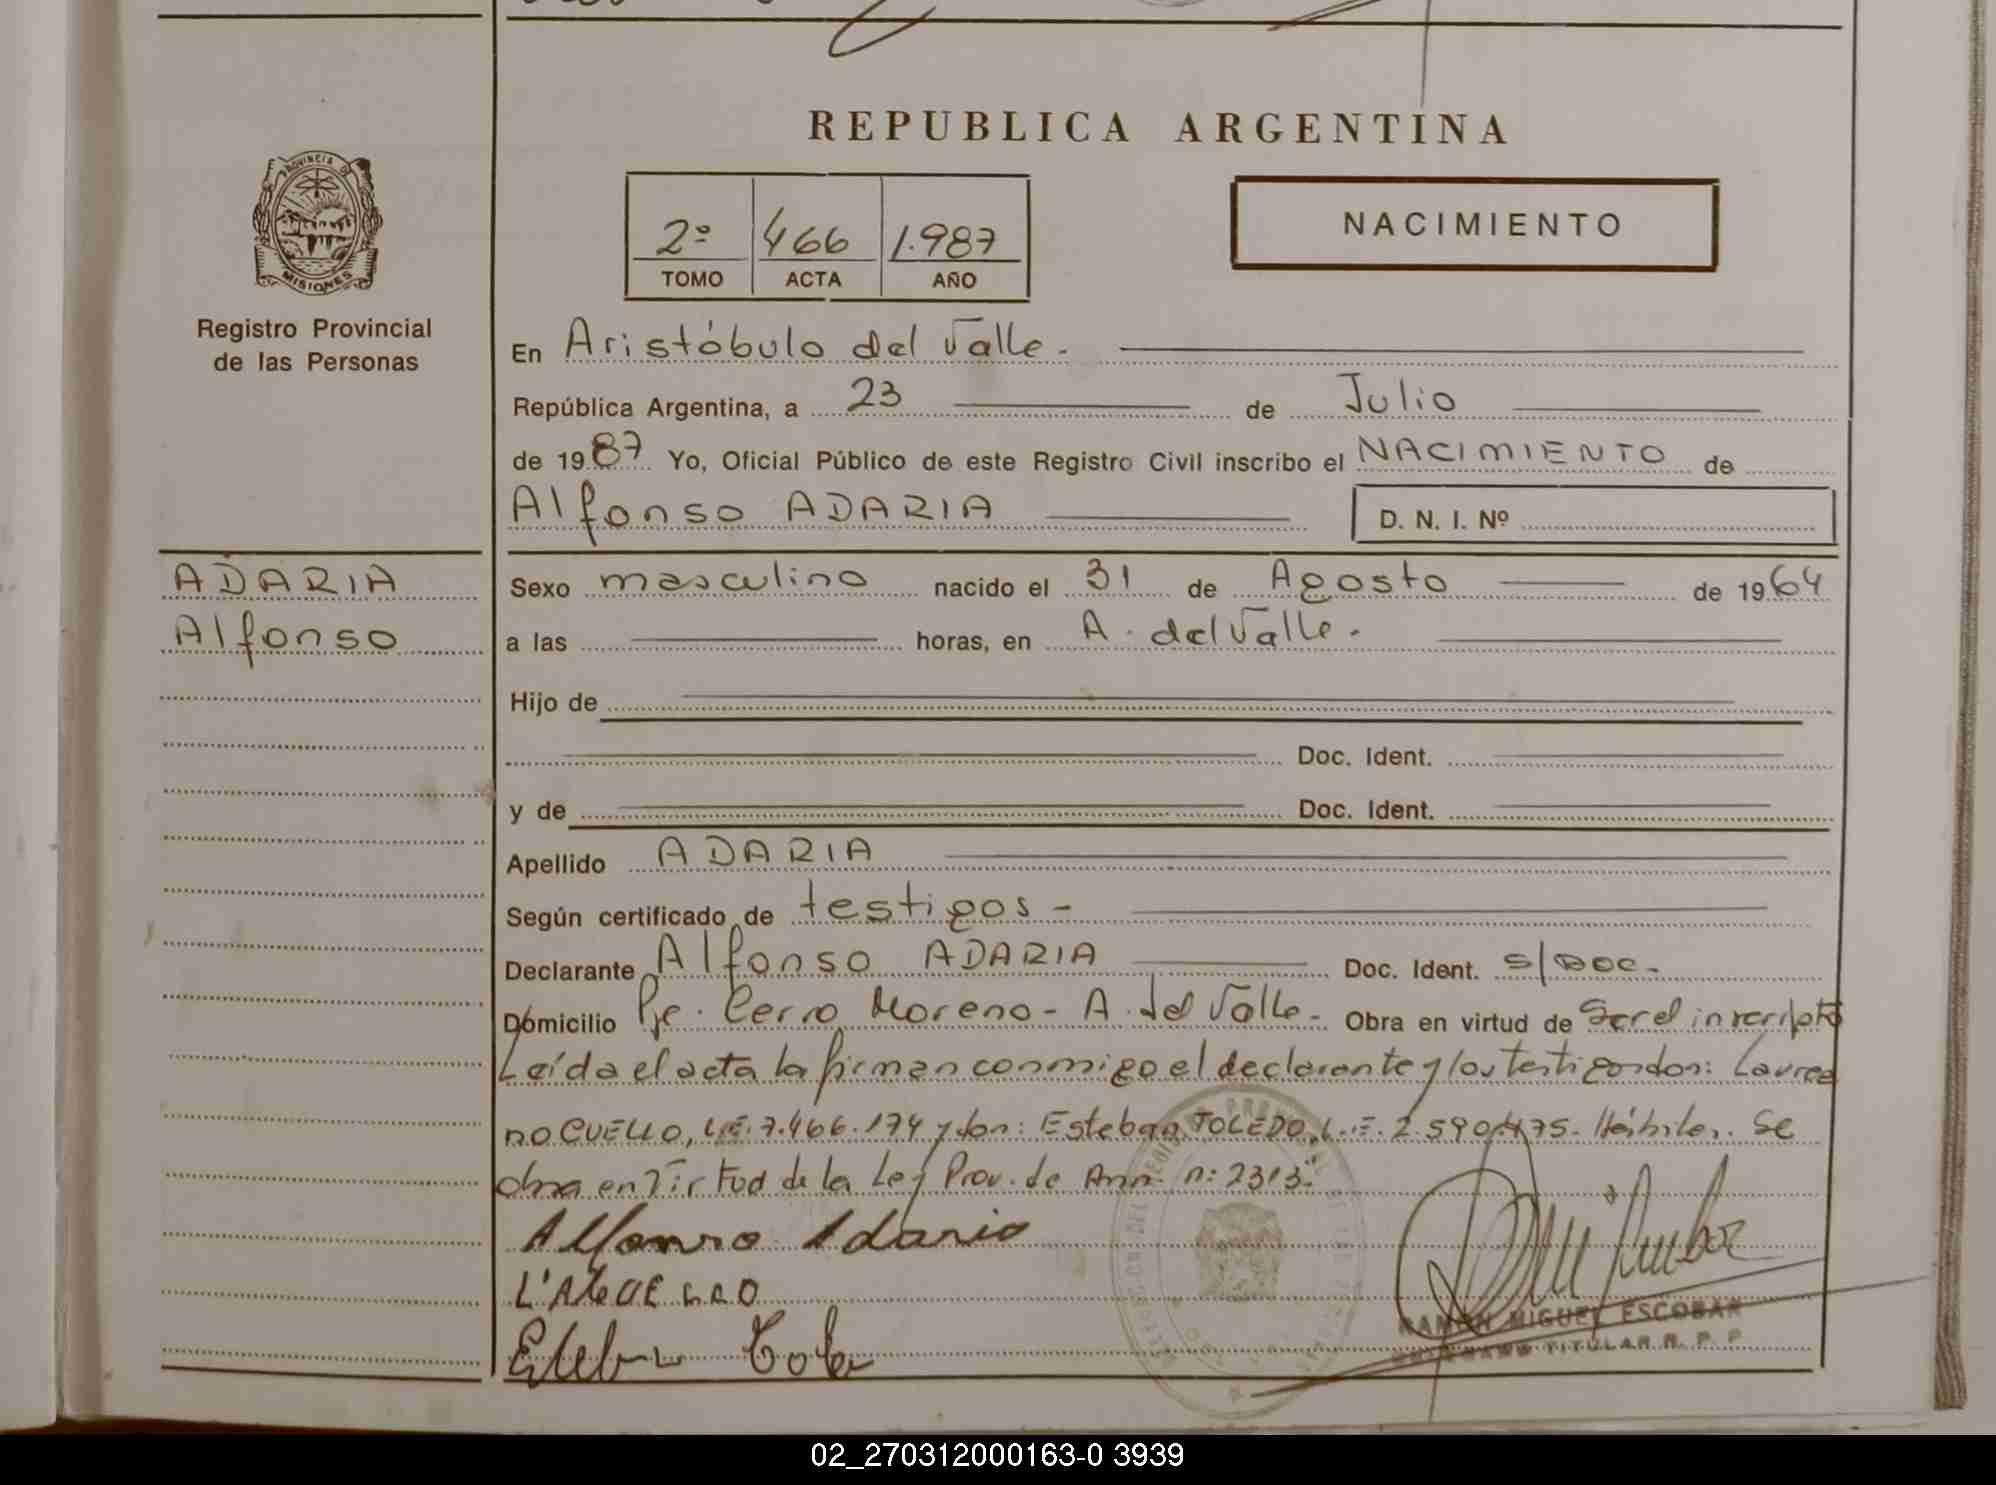 REPUBLICA ARGENTINA
PROVINCIA DE
MISIONES
Registro Provincial
de las Personas
2º 466 1.987
TOMO ACTA AÑO
NACIMIENTO
En Aristóbulo del Valle.
República Argentina, a 23 de Julio
de 1987 Yo, Oficial Público de este Registro Civil inscribo el NACIMIENTO de
Alfonso ADARIA D. N. I. Nº
ADARIA
Alfonso
Sexo masculino nacido el 31 de Agosto de 1964
a las horas, en A. del Valle.
Hijo de
Doc. Ident.
y de Doc. Ident.
Apellido ADARIA
Según certificado de testigos -
Declarante Alfonso ADARIA Doc. Ident. S/DOC.
Domicilio Pje. Cerro Moreno - A. del Valle - Obra en virtud de Ser el inscripto
Leída el acta la firman conmigo el declarante y los testigos don: Laurea
no CUELLO, L.E. 7.466.174 y don: Esteban TOLEDO, L.E. 2.590.475. Hábiles. Se
obra en virtud de la Ley Prov. de Amn. n: 2313.
Alfonso Adario
RAMON MIGUEL ESCOBAR
TITULAR R. P. P.
02_270312000163-0 3939